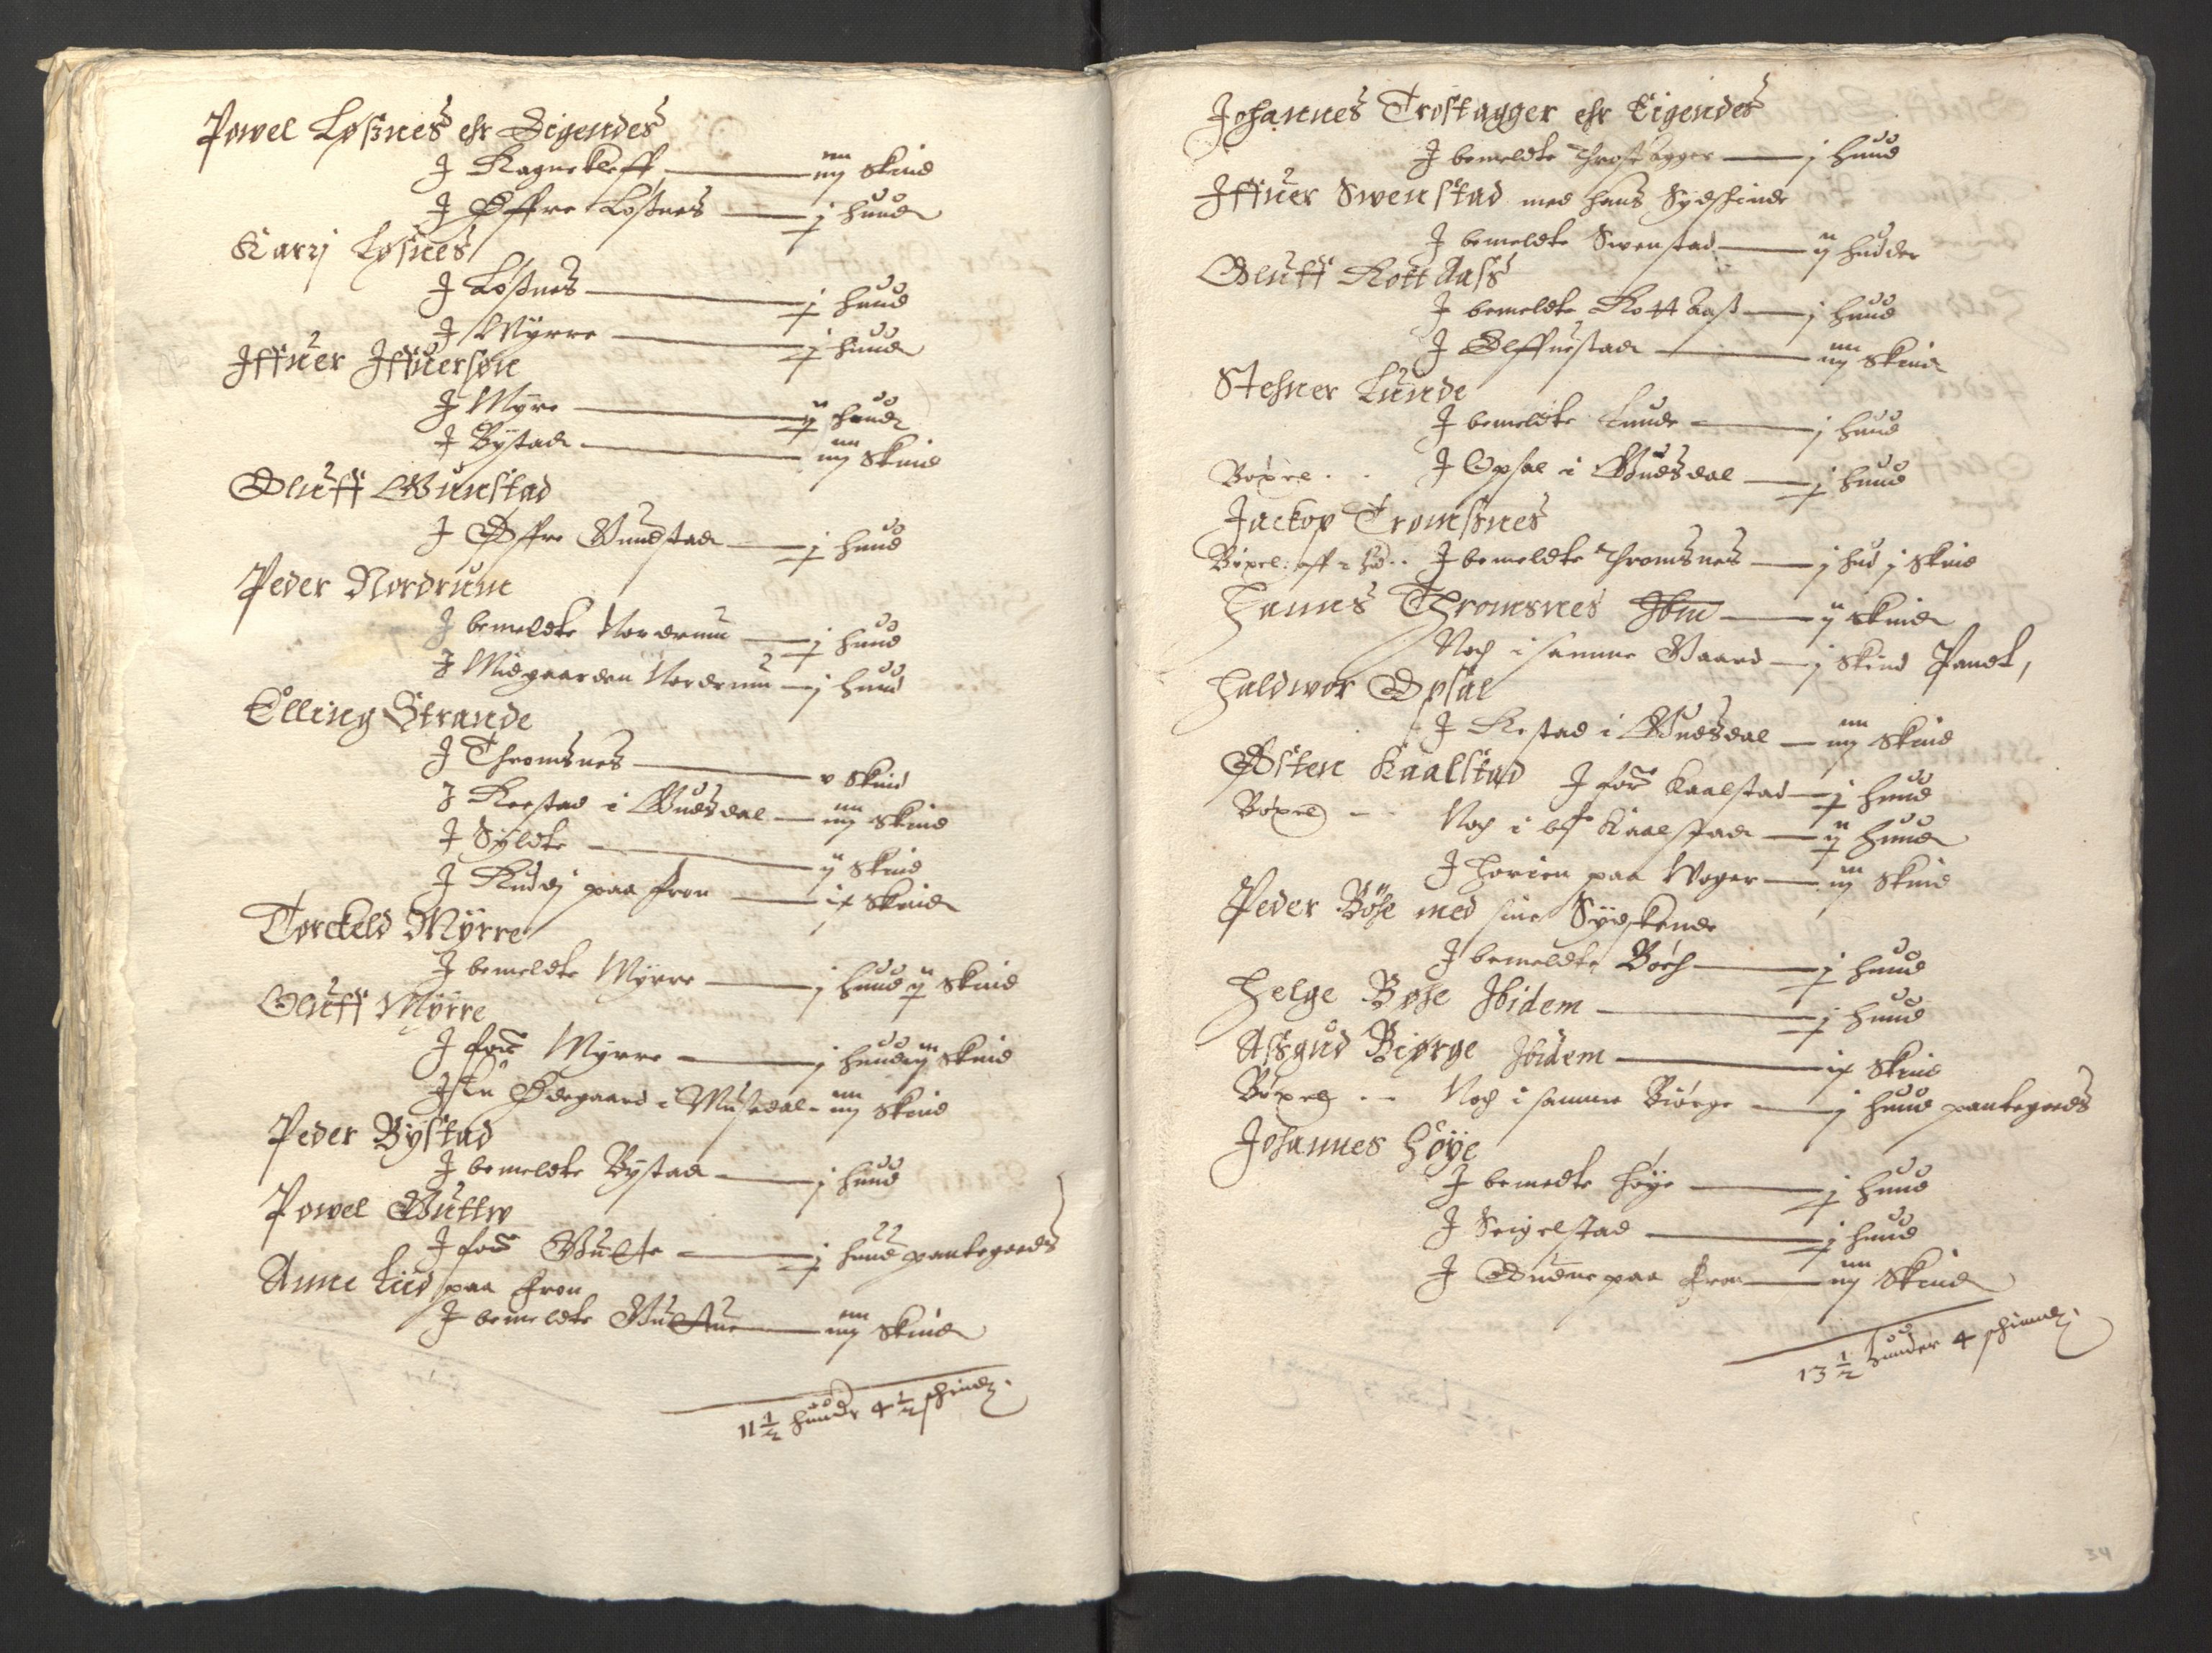 Powel Løssnes ehr Eigendes
J Ragnekleff — iiij Skind
J Øffre Lossnes — j Huud
Karrj Løsnes
J Lossnes — j Huud
J Myrre — j Huud
Jffuer Jffuersøn
J Myre — ij Huud
J Bystad — iiij Skind
Oluff Wunstad
J Øffre Wundstad — j Huud
Peder Nordrum
J bemeldte Nordrum — j Huud
J Midgaarden Nordrum — j Huud
Elling Strande
J Thromsnes — v Skind
J Reestad i Gudsdal — iiij Skind
J Syldte — ij Skind
J Rudj paa Fron — ix Skind
Torckeld Myrre
J bemeldte Myrre — j Huud ij Skind
Oluff Myrre
J forne Myrre — j Huud iij Skind
Ødegaard i Musedal — iiij Skind
Peder Bystad
J bemeldte Bystad — j Huud
Powel Gultw
J forne Gulte — j Huud pantegoeds
Anne Lud paa Fron
J bemeldte Gultue — iiij Skind
11 1/2 huuder 4 1/2 schind
Johannes Trostagger ehr Eigendes
J bemeldte Throstagger — j Huud
Jffuer Swenstad med hans Sydschinde
J bemeldte Swenstad — ij Hudder
Oluff Rott Aass
J bemeldte Rott Aass — j Huud
J Olffuestad — iiij Skind
Stehner Lunde
J bemeldte Lunde — j Huud
Bøxel . . J Opsal i Gudsdal — j Huud
Jackop Tromssnes
Bøxel: aff 2 hd .. J bemeldte Thromsnes — j Hud j Skind
Hanns Thromsnes Jbm — ij Skind
Noch i samme Gaard — j Skind Pandt,
Haldwor Opsal
J Restad i Gudsdal — iiij Skind
Østen Kaalstad J forne Kaalstad — j Huud
Bøxel - - Noch i Kaalstad — ij Huud
J Horien paa Woger — iij Skind
Peder Bøhe med sine Sydskende
J bemeldte Bøeh — j Huud
Helge Bøhe Jbidem — j Huud
Assgud Biørge Jbidem — ix Skind
Bøxel - - Noch i samme Biørge — j Huud pantegoeds
Johannes Høye
J bemedte Høye — j Huud
J Seigelstad — j Huud
J paa Fron — iiij Skind
13 1/2 huuder 4 schind
34